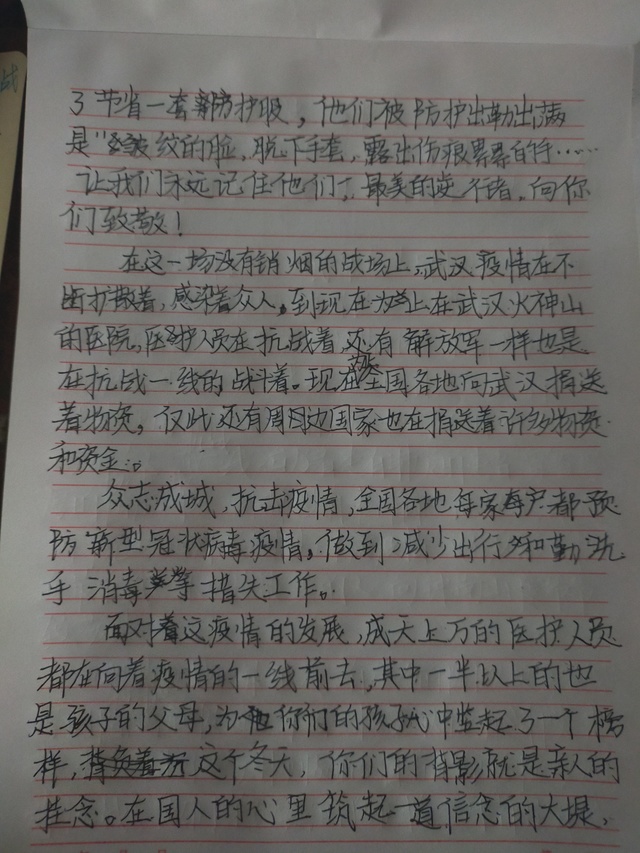 了节省一套防护服，他们被防护出勒出满
是"皱纹的脸，脱下手套，露出伤痕累累的手……
让我们永远记住他们，最美的逆行者，向你
们致敬！
在这一场没有销烟的战场上，武汉疫情在不
断扩散着，感染着众人，到现在为止在武汉火神山
的医院，医护人员在抗战着还有解放军一样也是
在抗战一线的战斗着。现在全国各地向武汉捐送
着物资，仅此还有周围边国家也在捐送着许多物资
和资金。
众志成城，抗击疫情，全国各地每家每户都预
防新型冠状病毒疫情，做到减少出行和勤洗
手消毒等措失工作。
面对着这疫情的发展，成天上万的医护人员
都在向着疫情的一线前去，其中一半以上的也
是孩子的父母，为你们的孩子心中竖起了一个榜
样，这个冬天，你们的背影就是亲人的
挂念。在国人的心里筑起一道信念的大堤，